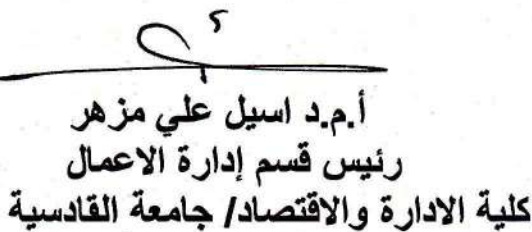 أ.م.د اسيل علي مزهر
رئيس قسم إدارة الاعمال
كلية الادارة والاقتصاد/ جامعة القادسية